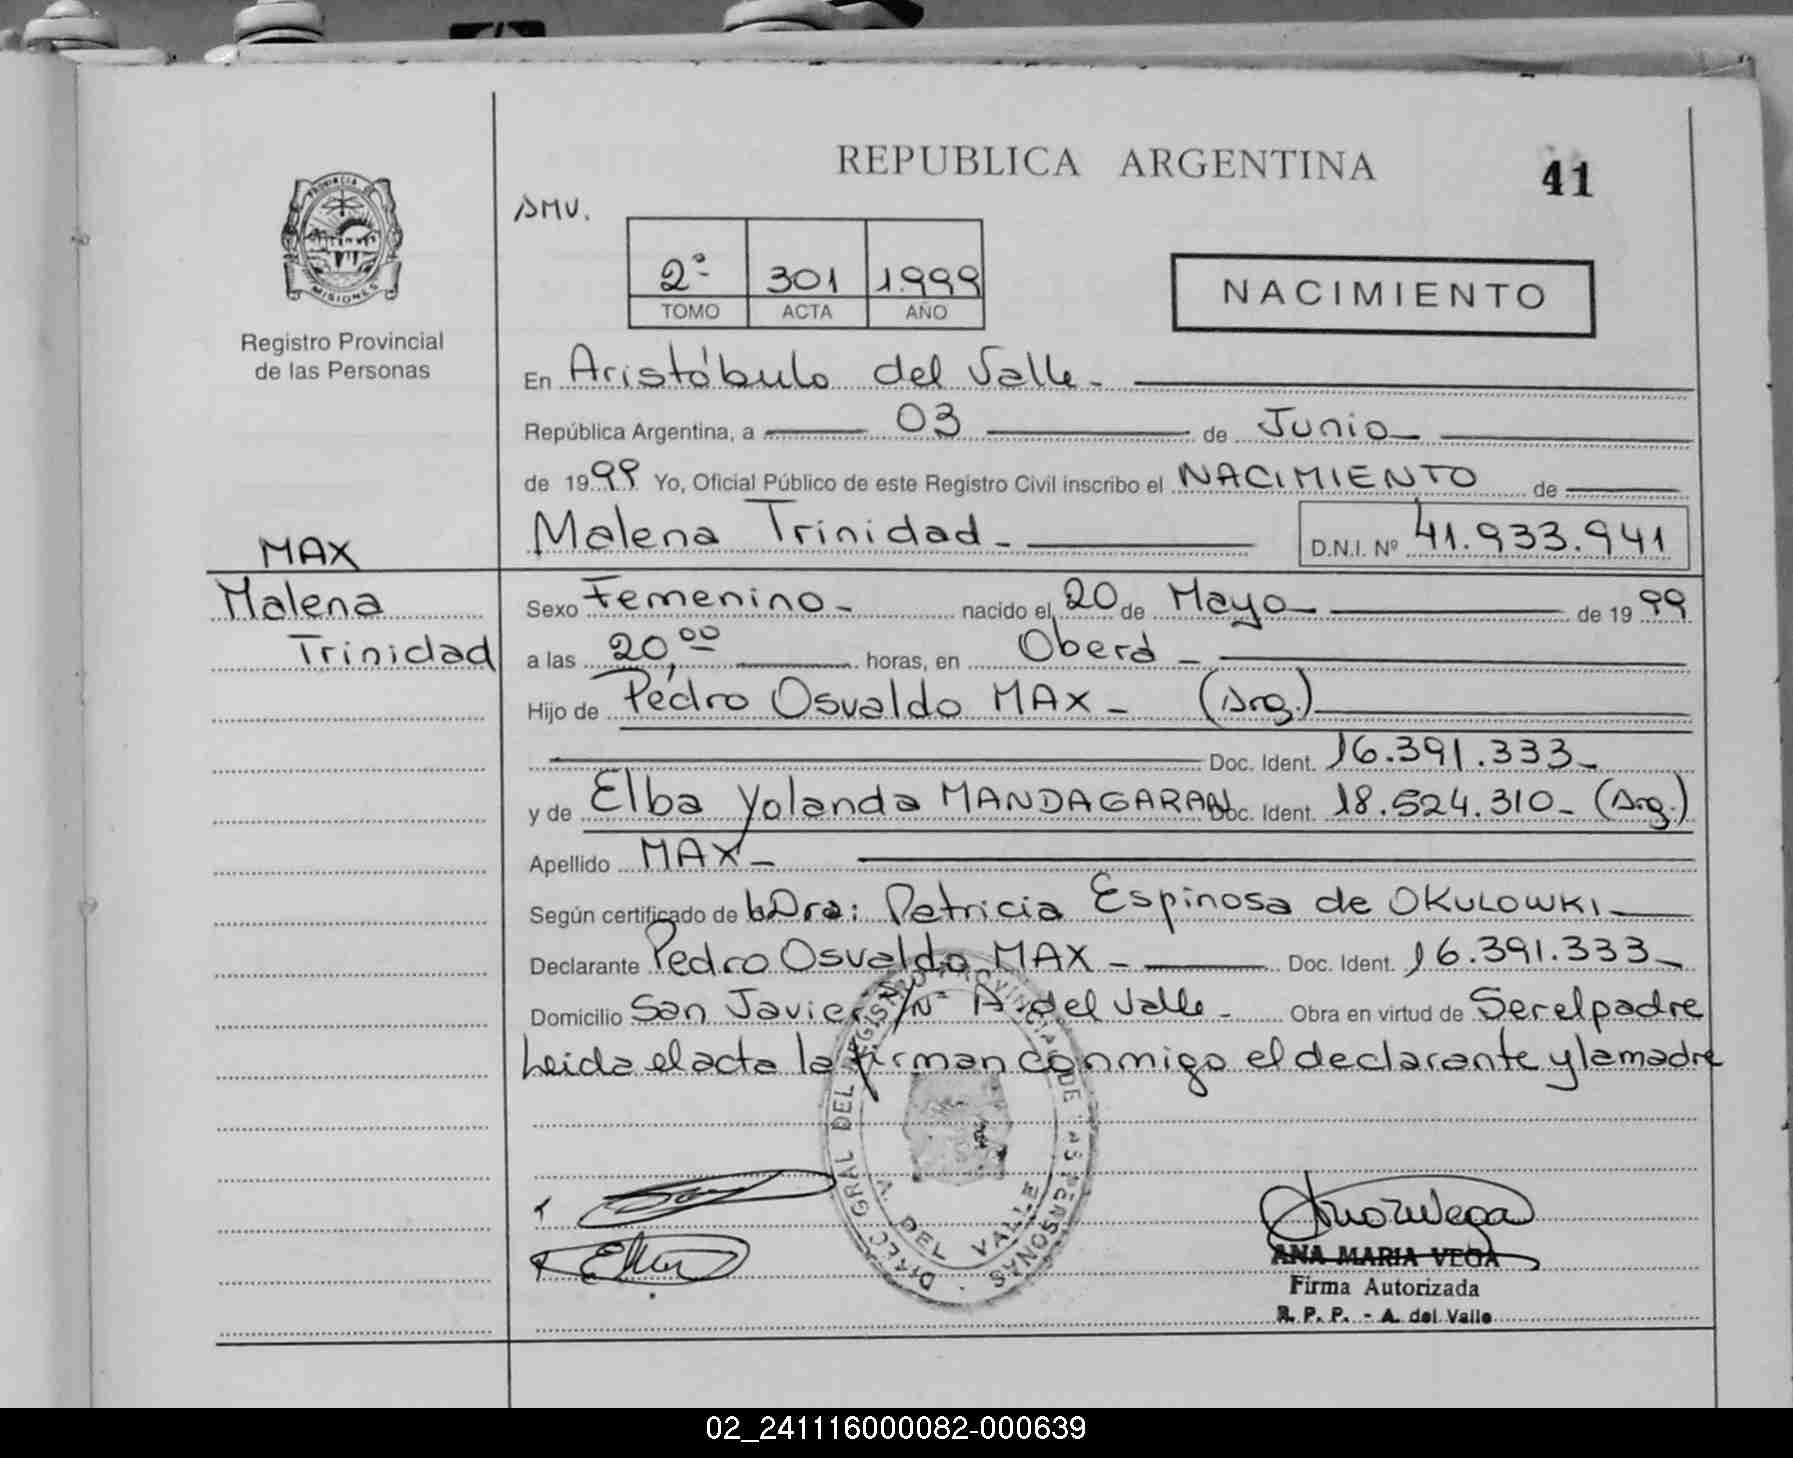 REPUBLICA ARGENTINA
41
PROVINCIA DE
MISIONES
Registro Provincial
de las Personas
AMV.
2º 301 1.999
TOMO ACTA AÑO
NACIMIENTO
En Aristóbulo del Valle-
República Argentina, a 03 de Junio-
de 1999 Yo, Oficial Público de este Registro Civil inscribo el NACIMIENTO de
Malena Trinidad- D.N.I. Nº 41.933.941
MAX
Malena
Trinidad
Sexo Femenino- nacido el 20 de Mayo- de 1999
a las 20,00 horas, en Oberá-
Hijo de Pedro Osvaldo MAX- (Arg.)
Doc. Ident. 16.391.333-
y de Elba Yolanda MANDAGARAN Doc. Ident. 18.524.310- (Arg.)
Apellido MAX-
Según certificado de Dra: Patricia Espinosa de OKULOWKI-
Declarante Pedro Osvaldo MAX- Doc. Ident. 16.391.333-
Domicilio San Javier s/Nº A del Valle- Obra en virtud de Ser el padre
Leida el acta la firman conmigo el declarante y la madre
DIREC GRAL DEL REGISTRO PROVINCIAL DE LAS PERSONAS
DEL VALLE
ANA MARIA VEGA
Firma Autorizada
R. P. P. - A. del Valle
02_241116000082-000639